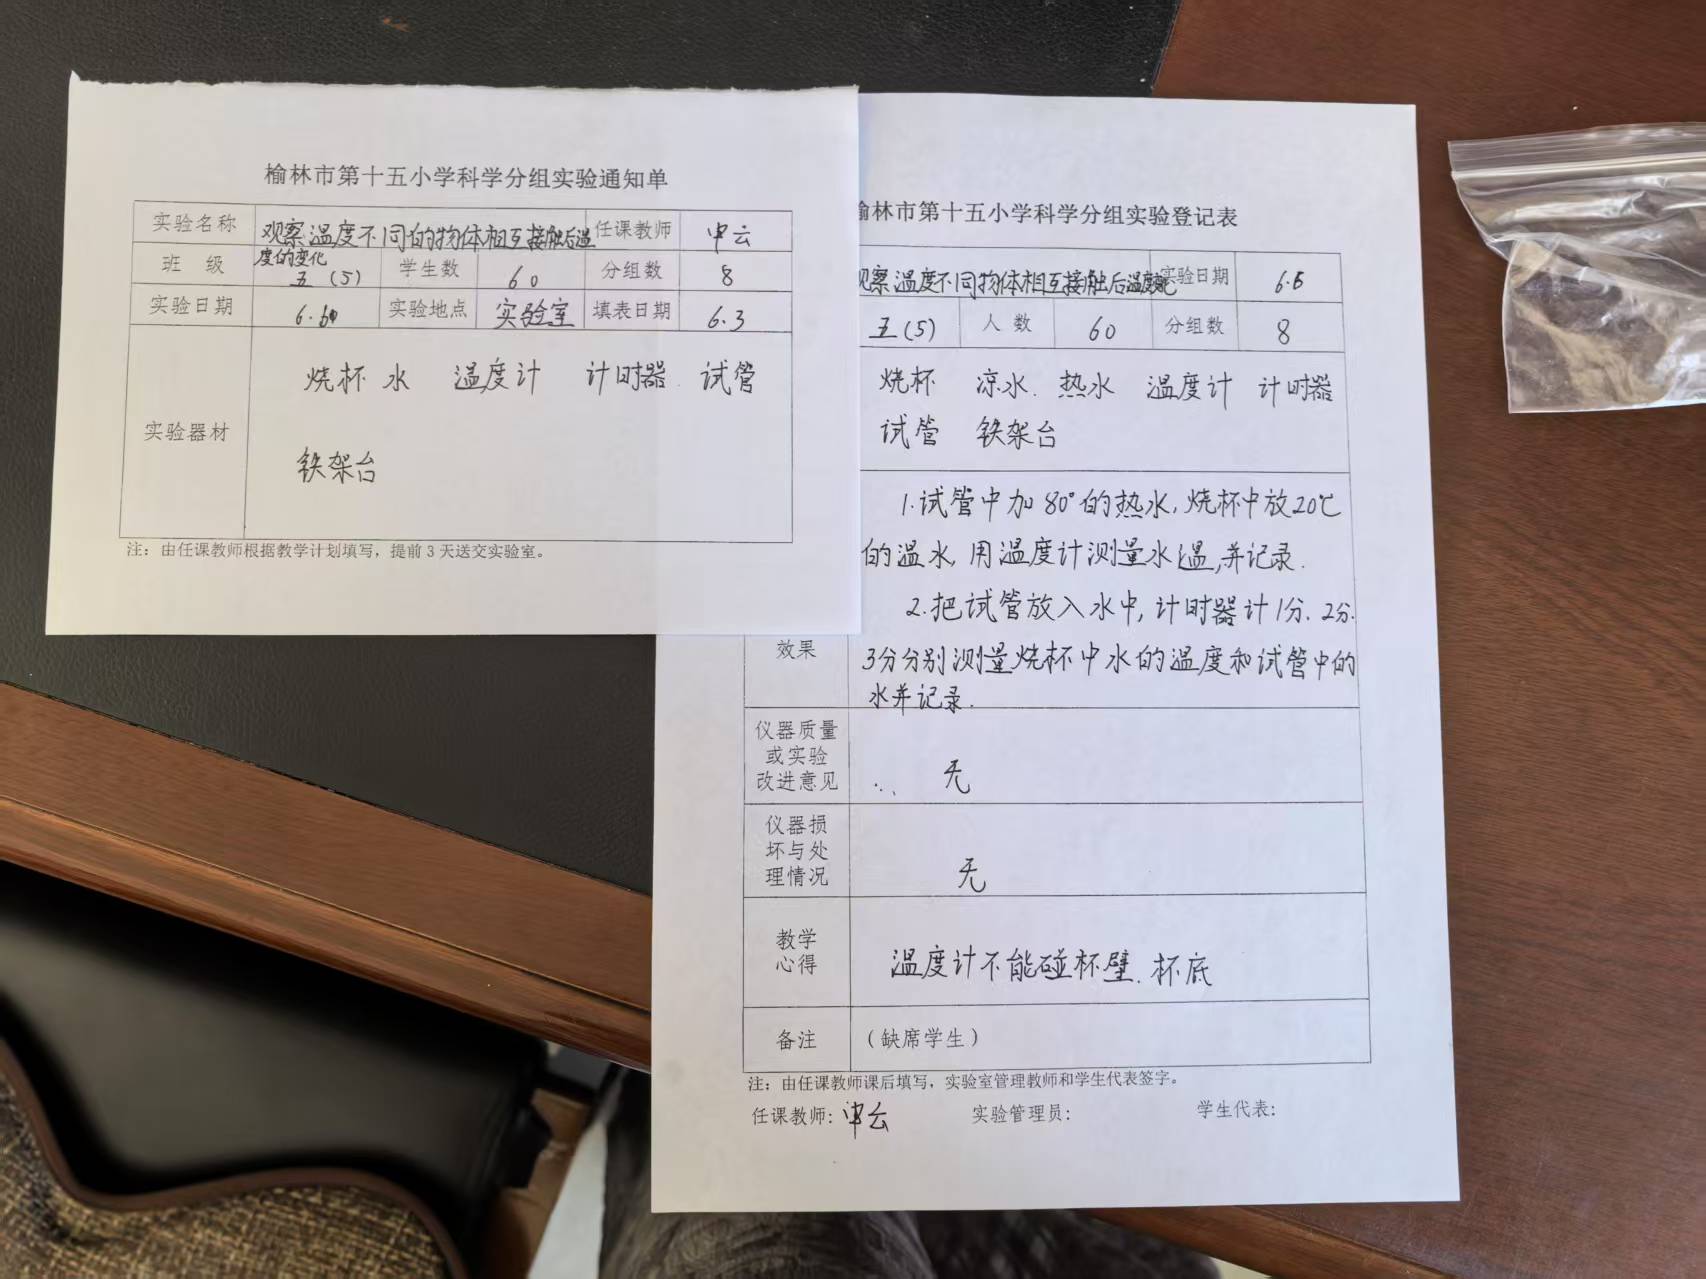 榆林市第十五小学科学分组实验通知单
实验名称 观察温度不同的物体相互接触后温 任课教师 申云
度的变化
班 级 五(5) 学生数 60 分组数 8
实验日期 6.6 实验地点 实验室 填表日期 6.3
实验器材 烧杯 水 温度计 计时器 试管
铁架台
注：由任课教师根据教学计划填写，提前3天送交实验室。
榆林市第十五小学科学分组实验登记表
观察温度不同物体相互接触后温度变化 实验日期 6.6
五(5) 人 数 60 分组数 8
烧杯 凉水 热水 温度计 计时器
试管 铁架台
1.试管中加80°的热水,烧杯中放20℃
的温水,用温度计测量水温,并记录.
2.把试管放入水中,计时器计1分.2分.
3分分别测量烧杯中水的温度和试管中的
水并记录.
效果
仪器质量
或实验
改进意见
无
仪器损
坏与处
理情况
无
教学
心得
温度计不能碰杯壁.杯底
备注 （缺席学生）
注：由任课教师课后填写，实验室管理教师和学生代表签字。
任课教师: 申云 实验管理员: 学生代表: